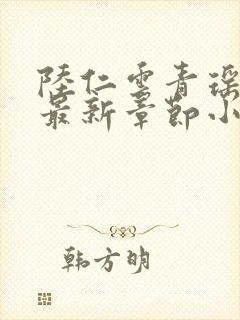 陸仁雲青瑶
最新章節小
韩方明